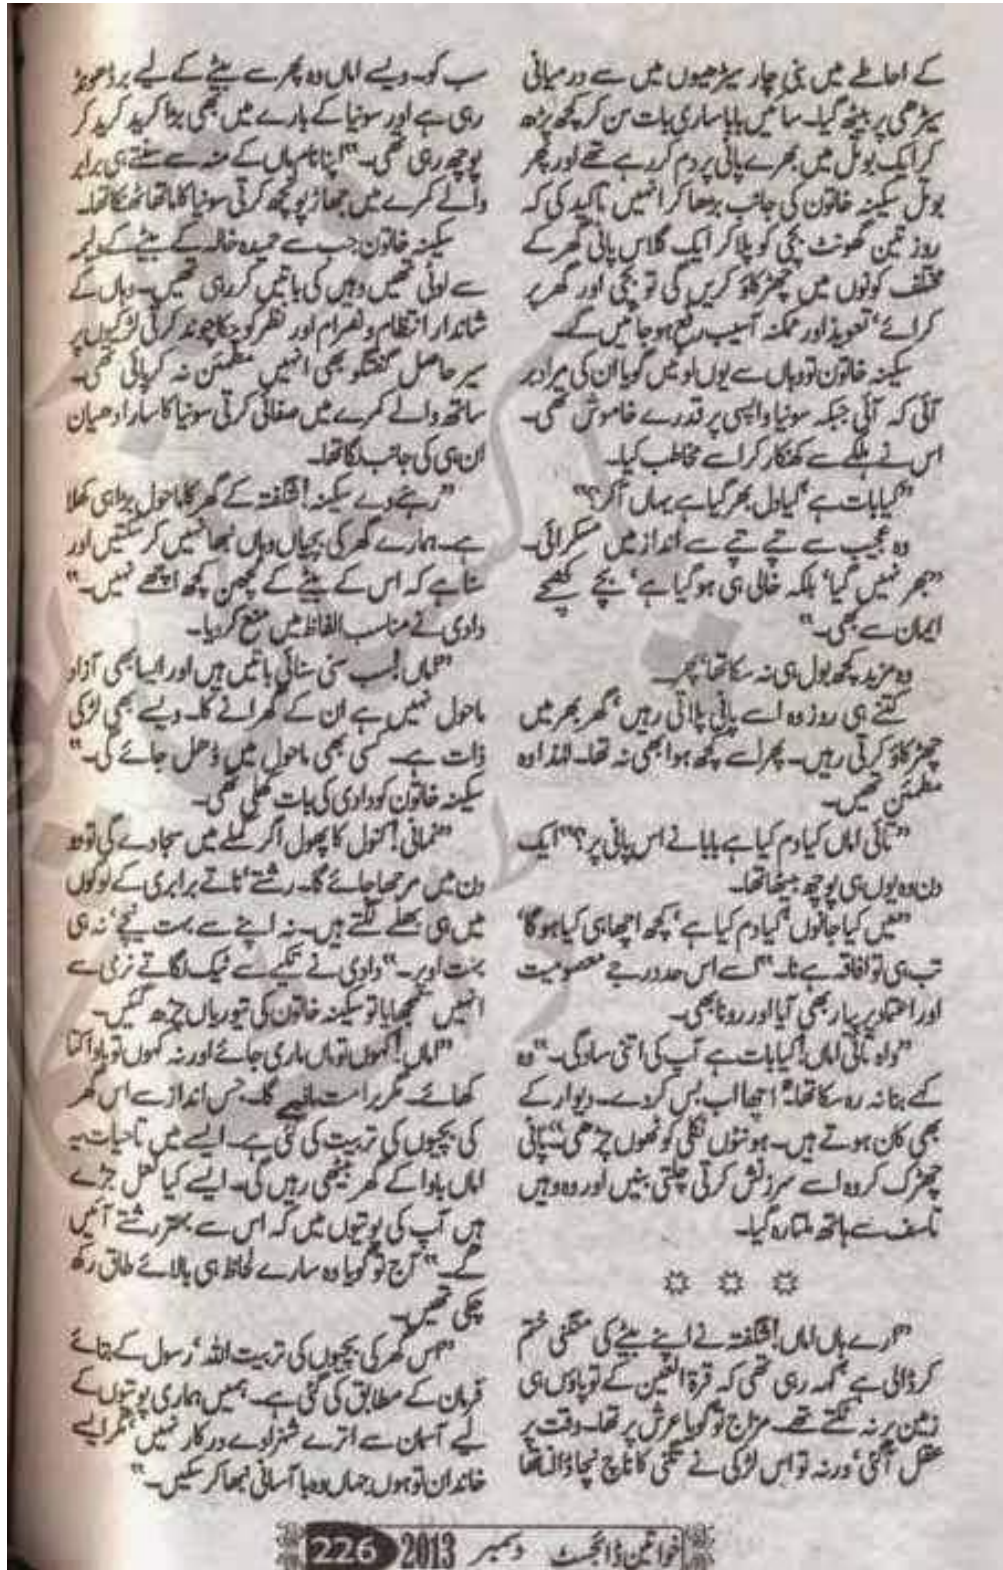 کے احاطے میں بنی چار سیڑھیوں میں سے درمیانی
سیڑھی پر بیٹھ گیا۔ سائیں بابا ساری بات سن کر کچھ پڑھ
کر ایک بوتل میں بھرے پانی پر دم کر رہے تھے اور پھر
بوتل سکینہ خاتون کی جانب بڑھا کر انہیں تاکید کی کہ
روز تین گھونٹ بچی کو پلا کر ایک گلاس پانی گھر کے
مختلف کونوں میں چھڑکاؤ کریں گی تو بچی اور گھر پر
کرائے‘ تعویذ اور ممکنہ آسیب رفع ہوجائیں گے۔
سکینہ خاتون تو وہاں سے یوں لوٹیں گویا ان کی مراد بر
آئی کہ آئی جبکہ سونیا واپسی پر قدرے خاموش تھی۔
اس نے ہلکے سے کھنکار کر اسے مخاطب کیا۔
”کیا بات ہے‘ کیا دل بھر گیا ہے یہاں آکر؟“
وہ عجیب سے تپے تپے سے انداز میں مسکرائی۔
”بھر نہیں گیا‘ بلکہ خالی ہی ہوگیا ہے‘ بچے کھچے
ایمان سے بھی۔“
وہ مزید کچھ بول ہی نہ سکا تھا پھر۔
کتنے ہی روز وہ اسے پانی پلاتی رہیں‘ گھر بھر میں
چھڑکاؤ کرتی رہیں۔ پھر اسے کچھ ہوا بھی نہ تھا۔ لہٰذا وہ
مطمئن تھیں۔
”تائی اماں کیا دم کیا ہے بابا نے اس پانی پر؟“ ایک
دن وہ یوں ہی پوچھ بیٹھا تھا۔
”میں کیا جانوں‘ کیا دم کیا ہے‘ کچھ اچھا ہی کیا ہوگا‘
تب ہی تو افاقہ ہے نا۔“ اسے اس حد درجے معصومیت
اور اعتماد پر پیار بھی آیا اور رونا بھی۔
”واہ تائی اماں! کیا بات ہے آپ کی اتنی سادگی۔“ وہ
کہے بنا نہ رہ سکا تھا۔ ”اچھا اب بس کردے۔ دیوار کے
بھی کان ہوتے ہیں۔ ہونٹوں نکلی کوٹھوں چڑھی“ پانی
چھڑک کر وہ اسے سرزنش کرتی چلتی بنیں اور وہ وہیں
تاسف سے ہاتھ ملتا رہ گیا۔
”ارے ہاں اماں! شگفتہ نے اپنے بیٹے کی منگنی ختم
کر ڈالی ہے کہہ رہی تھی کہ قرۃ العین کے تو پاؤں ہی
زمین پر نہ ٹکتے تھے۔ مزاج تو گویا عرش پر تھا۔ وقت پر
عقل آگئی‘ ورنہ تو اس لڑکی نے تگنی کا ناچ نچا ڈالنا تھا
سب کو۔ ویسے اماں وہ پھر سے بیٹے کے لیے بر ڈھونڈ
رہی ہے اور سونیا کے بارے میں بھی بڑا کرید کرید کر
پوچھ رہی تھی۔“ اپنا نام ماں کے منہ سے سنتے ہی برابر
والے کمرے میں جھاڑ پونچھ کرتی سونیا کا ماتھا ٹھنکا تھا۔
سکینہ خاتون جب سے حمیدہ خالہ کے بیٹے کے ولیمہ
سے لوٹی تھیں وہیں کی باتیں کر رہی تھیں۔ وہاں کے
شاندار انتظام و اہرام اور نظر کو چکا چوند کرتی لڑکیوں پر
سیر حاصل گفتگو بھی انہیں مطمئن نہ کر پائی تھی۔
ساتھ والے کمرے میں صفائی کرتی سونیا کا سارا دھیان
ان ہی کی جانب لگا تھا۔
”رہنے دے سکینہ! شگفتہ کے گھر کا ماحول بڑا ہی کھلا
ہے۔ ہمارے گھر کی بچیاں وہاں نبھا نہیں کر سکتیں اور
سنا ہے کہ اس کے بیٹے کے لچھن کچھ اچھے نہیں۔“
دادی نے مناسب الفاظ میں منع کر دیا۔
”اماں! بس سنی سنائی باتیں ہیں اور ایسا بھی آزاد
ماحول نہیں ہے ان کے گھرانے کا۔ ویسے بھی لڑکی
ذات ہے۔ کسی بھی ماحول میں ڈھل جائے گی۔“
سکینہ خاتون کو دادی کی بات کھلی تھی۔
”نمانی! کنول کا پھول اگر گملے میں سجا دے گی تو وہ
دن میں مرجھا جائے گا۔ رشتے‘ ناتے برابری کے لوگوں
میں ہی بھلے لگتے ہیں۔ نہ اپنے سے بہت نیچے‘ نہ ہی
بہت اوپر۔“ دادی نے تکیے سے ٹیک لگاتے نرمی سے
انہیں سمجھایا تو سکینہ خاتون کی تیوریاں چڑھ گئیں۔
”اماں! کہوں تو ماں ماری جائے اور نہ کہوں تو باوا کتا
کھائے۔ مگر برا مت مانیے گا۔ جس انداز سے اس گھر
کی بچیوں کی تربیت کی گئی ہے۔ ایسے میں تاحیات یہ
اماں باوا کے گھر بیٹھی رہیں گی۔ ایسے کیا لعل جڑے
ہیں آپ کی پوتیوں میں کہ اس سے بہتر رشتے آئیں
گے۔“ آج تو گویا وہ سارے لحاظ ہی بالائے طاق رکھ
چکی تھیں۔
”اس گھر کی بچیوں کی تربیت اللہ‘ رسول کے بتائے
فرمان کے مطابق کی گئی ہے۔ ہمیں ہماری پوتیوں کے
لیے آسمان سے اترے شہزادے درکار نہیں‘ مگر ایسے
خاندان تو ہوں جہاں وہ با آسانی نبھا کر سکیں۔“
خواتین ڈائجسٹ دسمبر 2013 226